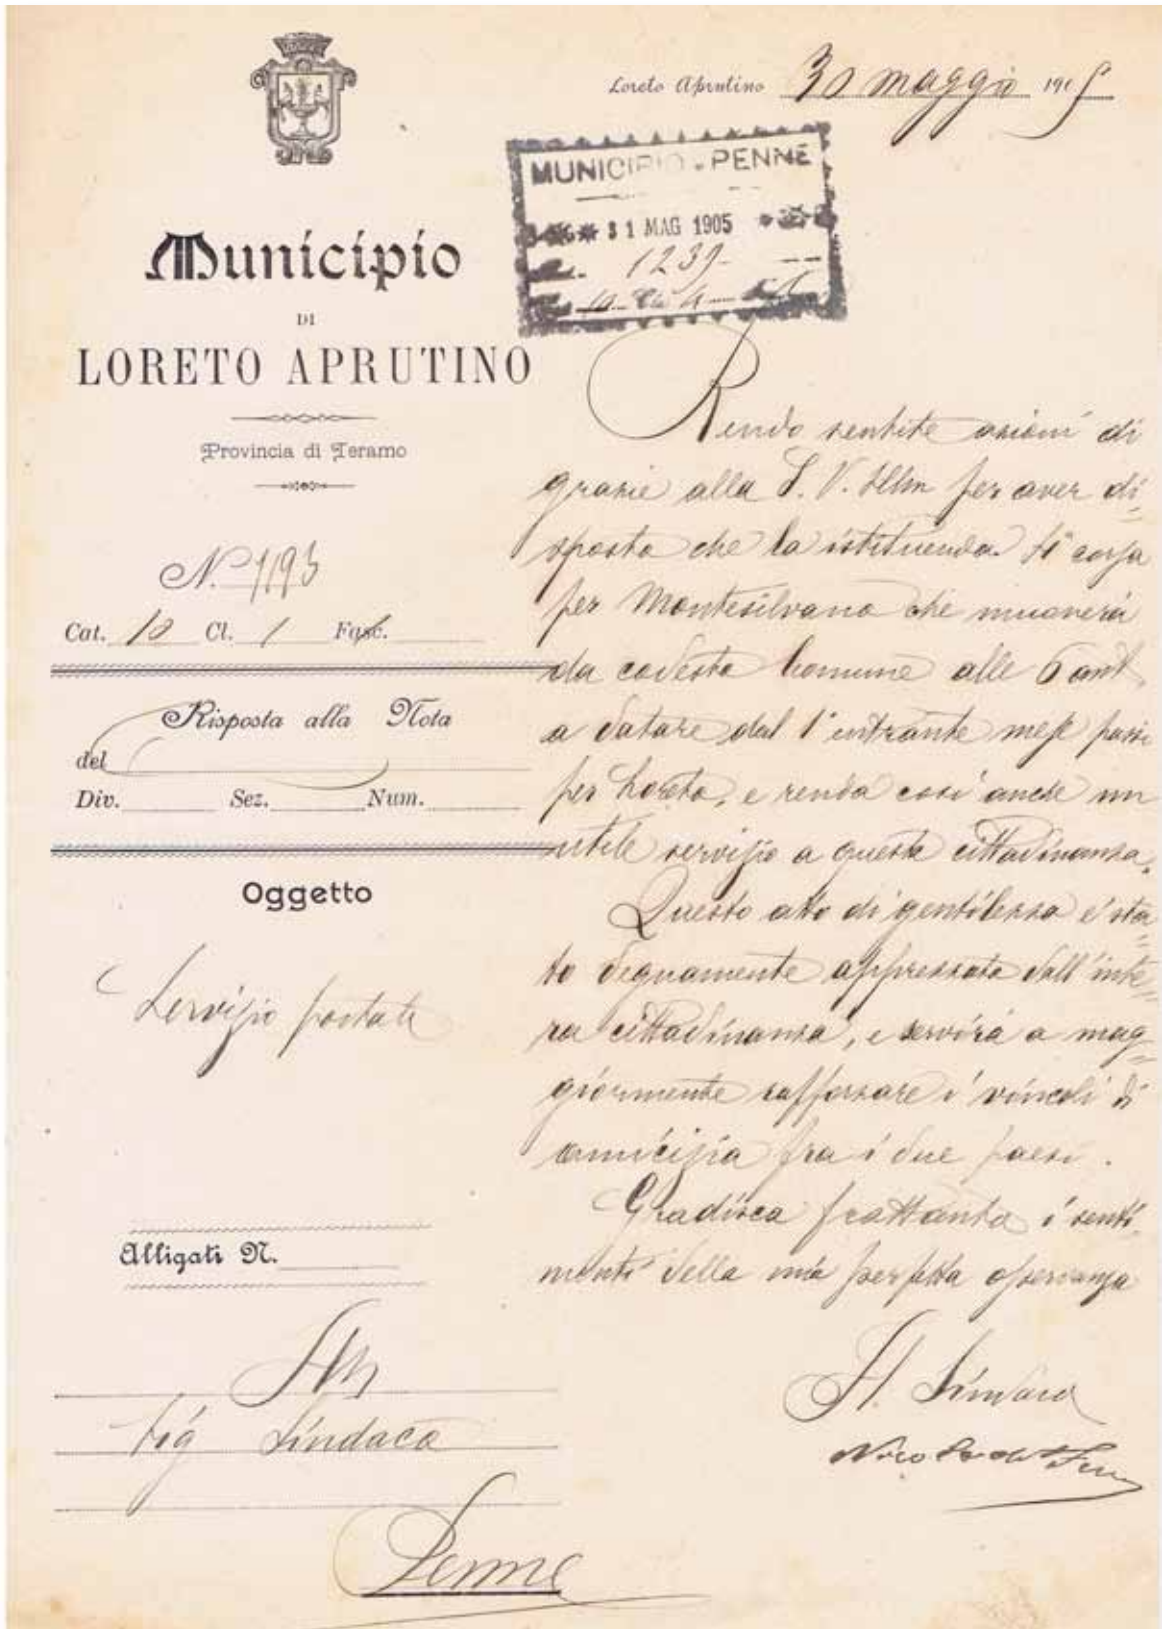 Loreto Aprutino 30 maggio 1905
MUNICIPIO - PENNE
31 MAG 1905
1239
10 Cl. 4
Municipio
DI
LORETO APRUTINO
Provincia di Teramo
N. 1193
Cat. 10 Cl. 1 Fasc.
Risposta alla Nota
del
Div. Sez. Num.
Oggetto
Servizio postale
Alligati N.
Sig Sindaco
Penne
Rendo sentite azioni di
grazie alla S. V. Illm per aver di=
sposto che la istituenda corsa
per Montesilvano che muoverà
da codesto Comune alle 6 ant.
a datare dal 1° entrante mese passi
per Loreto, e renda così anche un
utile servizio a questa cittadinanza.
Questo atto di gentilezza è sta=
to degnamente apprezzato dall'inte=
ra cittadinanza, e servirà a mag=
giormente rafforzare i vincoli di
amicizia fra i due paesi.
Gradisca frattanto i senti=
menti della mia perfetta osservanza
Il Sindaco